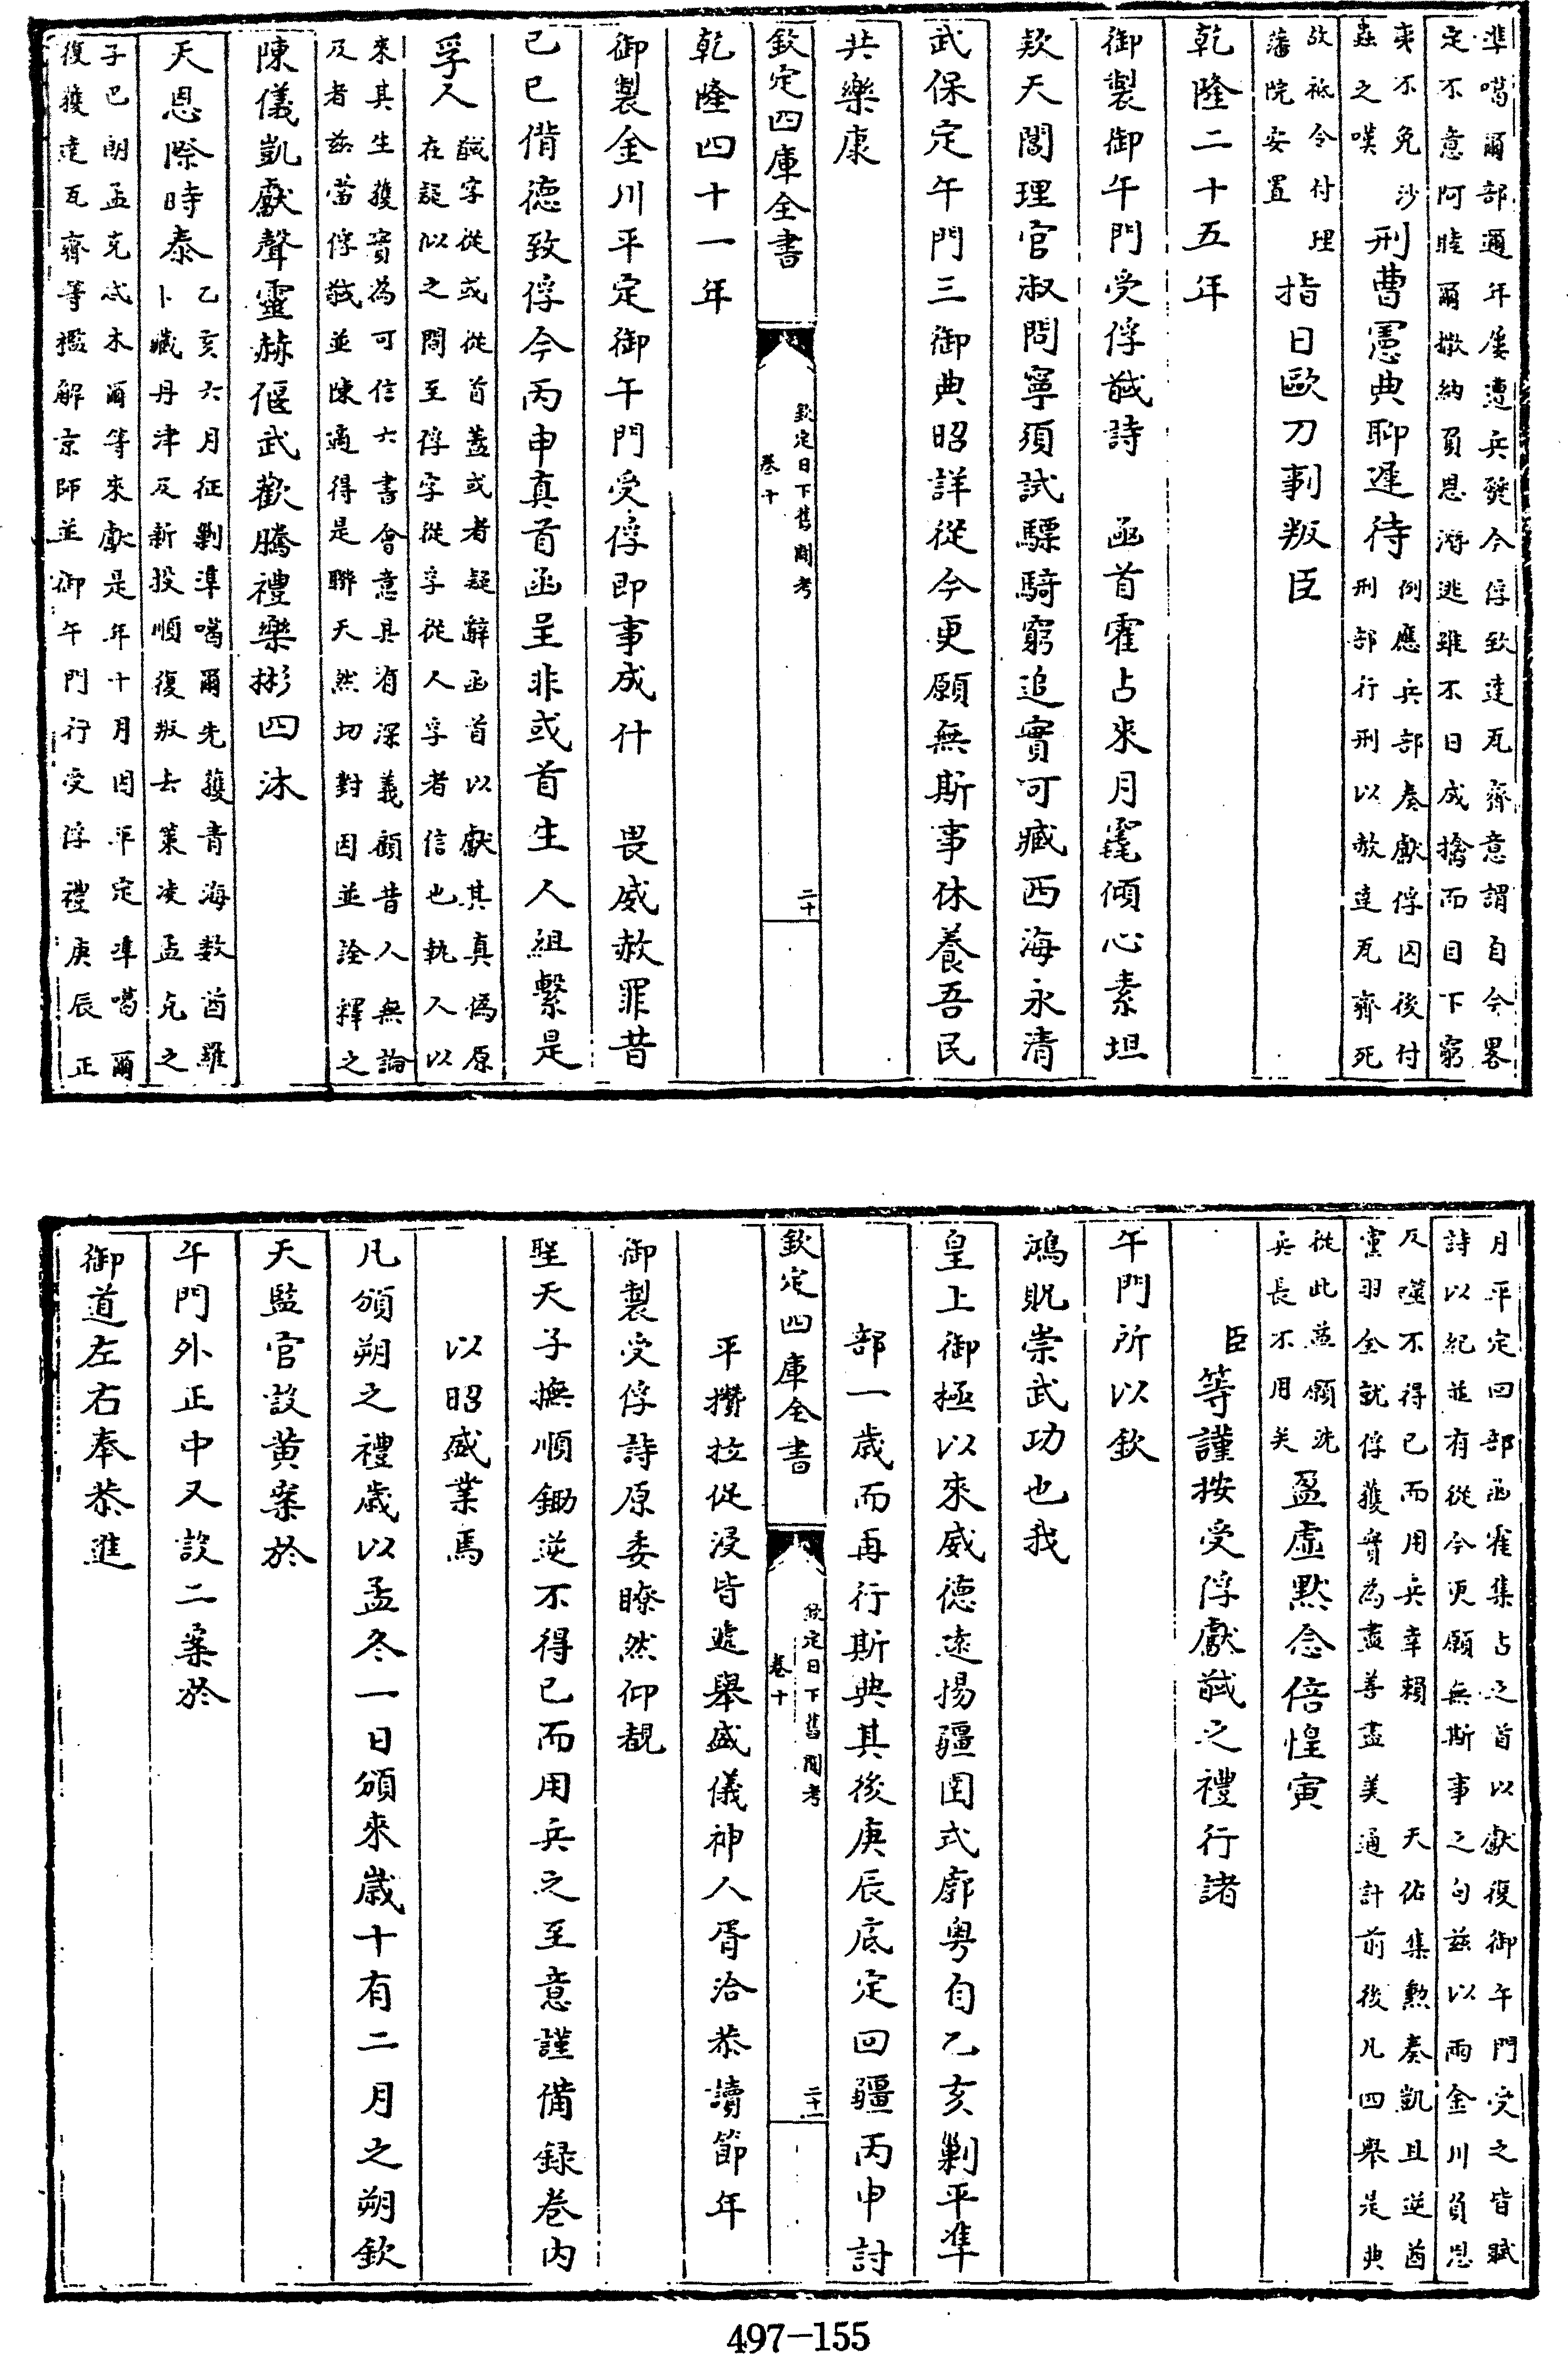 準噶爾部邇年屢遭兵燹今俘致達瓦齊意謂自今畧
定不意阿睦爾撒納負恩潛逃雖不日成擒而目下窮
夷不免沙
蟲之嘆
刑曹憲典聊遲待
例應兵部奏獻俘囚後付
刑部行刑以赦達瓦齊死
故祗令付理
藩院安置
指日歐刀剚叛臣
乾隆二十五年
御製御午門受俘馘詩　函首霍占來月竁傾心素坦
款天閽理官淑問寧須試驃騎窮追實可臧西海永清
武保定午門三御典昭詳從今更願無斯事休養吾民
共樂康
欽定四庫全書
欽定日下舊聞考
卷十
二十
乾隆四十一年
御製金川平定御午門受俘即事成什　畏威赦罪昔
己巳偝德致俘今丙申真首函呈非或首生人組繫是
孚人
馘字從或從首蓋或者疑辭函首以獻其真偽原
在疑似之間至俘字從孚從人孚者信也執人以
來其生獲實為可信六書會意具有深義顧昔人無論
及者茲當俘馘並陳適得是聯天然切對因並詮釋之
陳儀凱獻聲靈赫偃武歡騰禮樂彬四沐
天恩際時泰
乙亥六月征剿準噶爾先獲青海数酋羅
卜藏丹津及新投順復叛去策凌孟克之
子巴朗孟克忒木爾等來獻是年十月因平定準噶爾
復獲達瓦齊等檻解京師並御午門行受俘禮庚辰正
月平定回部函霍集占之首以獻復御午門受之皆賦
詩以紀並有從今更願無斯事之句茲以兩金川負恩
反噬不得已而用兵幸賴　天佑集勲奏凱且逆酋
黨羽全就俘獲實為盡善盡美通計前後凡四舉是典
從此益願洗
兵長不用矣
盈虛黙念倍惶寅
臣等謹按受俘獻馘之禮行諸
午門所以欽
鴻貺崇武功也我
皇上御極以來威德遠揚疆圉式廓粤自乙亥剿平準
部一歲而再行斯典其後庚辰底定回疆丙申討
欽定四庫全書
欽定日下舊聞考
卷十
二十一
平攢拉促浸皆遞舉盛儀神人胥洽恭讀節年
御製受俘詩原委瞭然仰覩
聖天子撫順鋤逆不得已而用兵之至意謹備録卷内
以昭盛業焉
凡頒朔之禮歲以孟冬一日頒來歲十有二月之朔欽
天監官設黄案於
午門外正中又設二案於
御道左右奉恭進
497-155